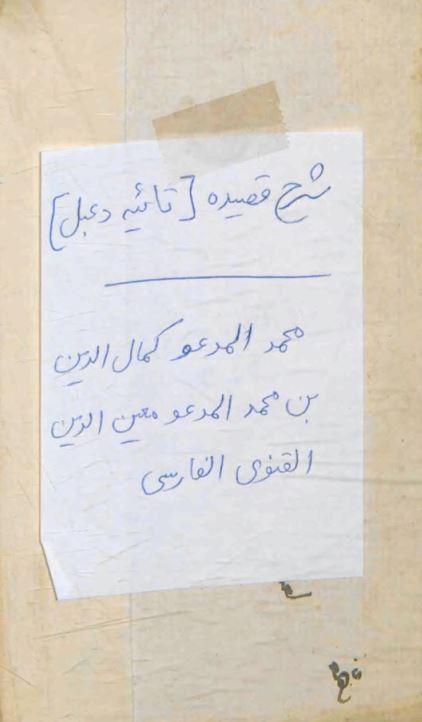 شرح قصیده [تائیه دعبل]
محمد المدعو کمال الدین
بن محمد المدعو معین الدین
القنوی الفارسی